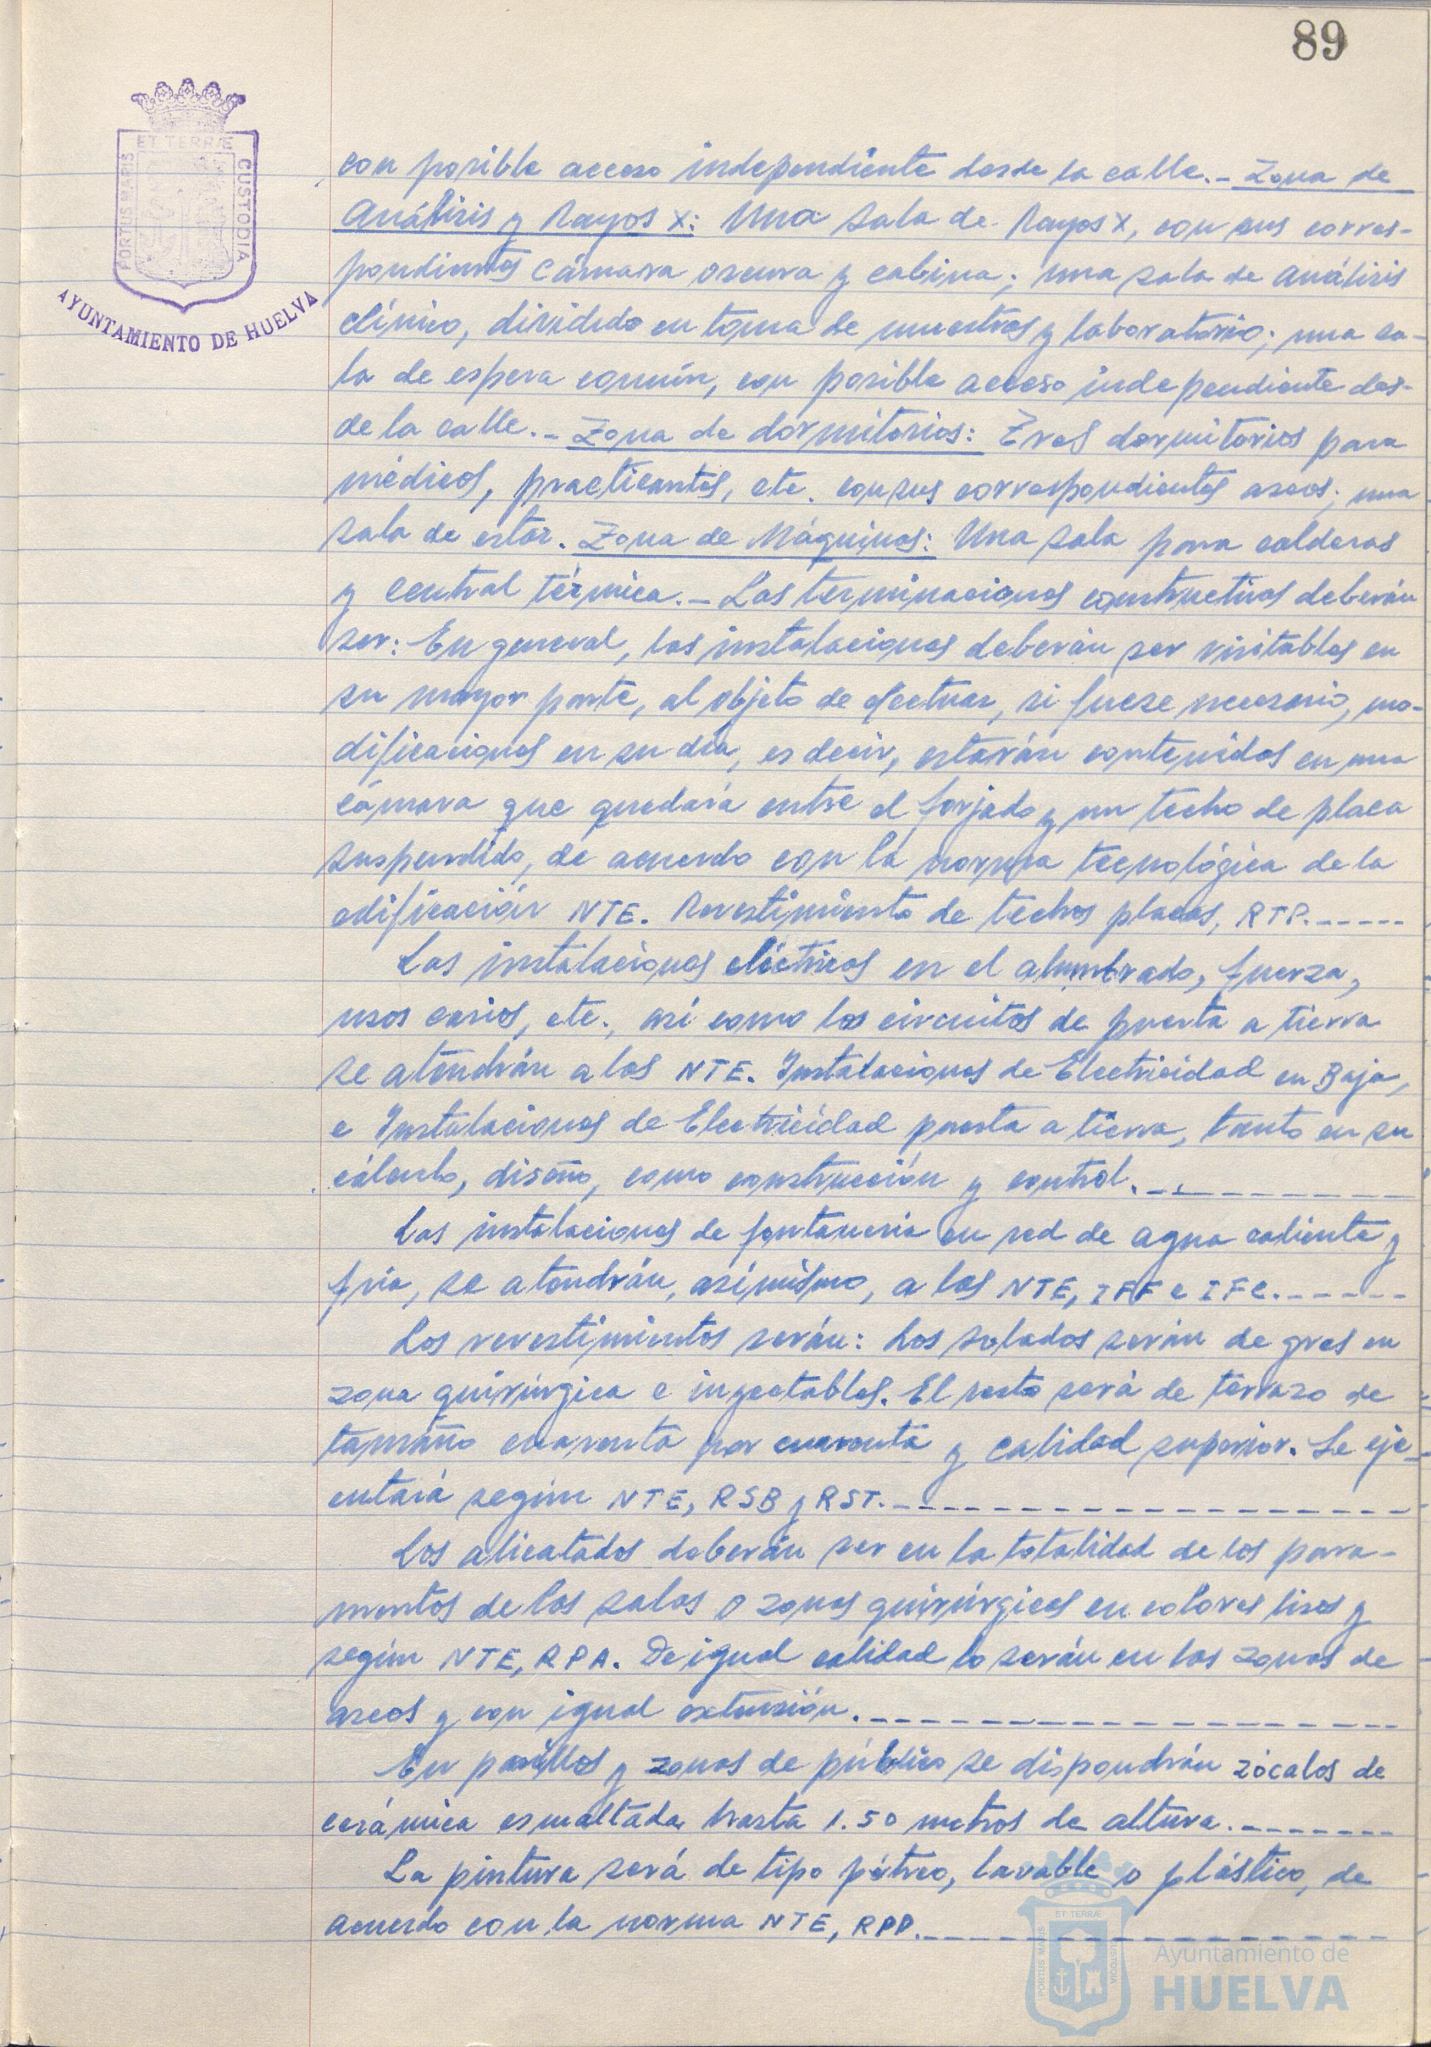 89
ET TERRÆ
PORTUS MARIS
CUSTODIA
AYUNTAMIENTO DE HUELVA
con posible acceso independiente desde la calle.- Zona de
Análisis y Rayos X: Una sala de Rayos X, con sus corres-
pondientes cámara oscura y cabina; una sala de análisis
clínico, dividido en toma de muestras y laboratorio; una sa-
la de espera común, con posible acceso independiente des-
de la calle.- Zona de dormitorios: Tres dormitorios para
médicos, practicantes, etc. con sus correspondientes aseos; una
sala de estar. Zona de Máquinas: Una sala para calderas
y central térmica.- Las terminaciones constructivas deberán
ser: En general, las instalaciones deberán ser visitables en
su mayor parte, al objeto de efectuar, si fuese necesario, mo-
dificaciones en su día, es decir, estarán contenidas en una
cámara que quedará entre el forjado y un techo de placa
suspendido, de acuerdo con la norma tecnológica de la
edificación NTE. Revestimiento de techos placas, RTP.-----
Las instalaciones eléctricas en el alumbrado, fuerza,
usos varios, etc., así como los circuitos de puesta a tierra
se atendrán a las NTE. Instalaciones de Electricidad en Baja,
e Instalaciones de Electricidad puesta a tierra, tanto en su
cálculo, diseño, como construcción y control.----------
Las instalaciones de fontanería en red de agua caliente y
fría, se atendrán, asímismo, a las NTE, IFF e IFC.------
Los revestimientos serán: Los solados serán de gres en
zona quirúrgica e inyectables. El resto será de terrazo de
tamaño cuarenta por cuarenta y calidad superior. Se eje-
cutará según NTE, RSB y RST.-----------------
Los alicatados deberán ser en la totalidad de los para-
mentos de las salas o zonas quirúrgicas en colores lisos y
según NTE, RPA. De igual calidad lo serán en las zonas de
aseos y con igual extensión.------------------
En pasillos y zonas de público se dispondrán zócalos de
cerámica esmaltada hasta 1.50 metros de altura.-------
La pintura será de tipo pétreo, lavable o plástico, de
acuerdo con la norma NTE, RPP.----------------
ET TERRÆ
PORTUS MARIS
CUSTODIA
Ayuntamiento de
HUELVA